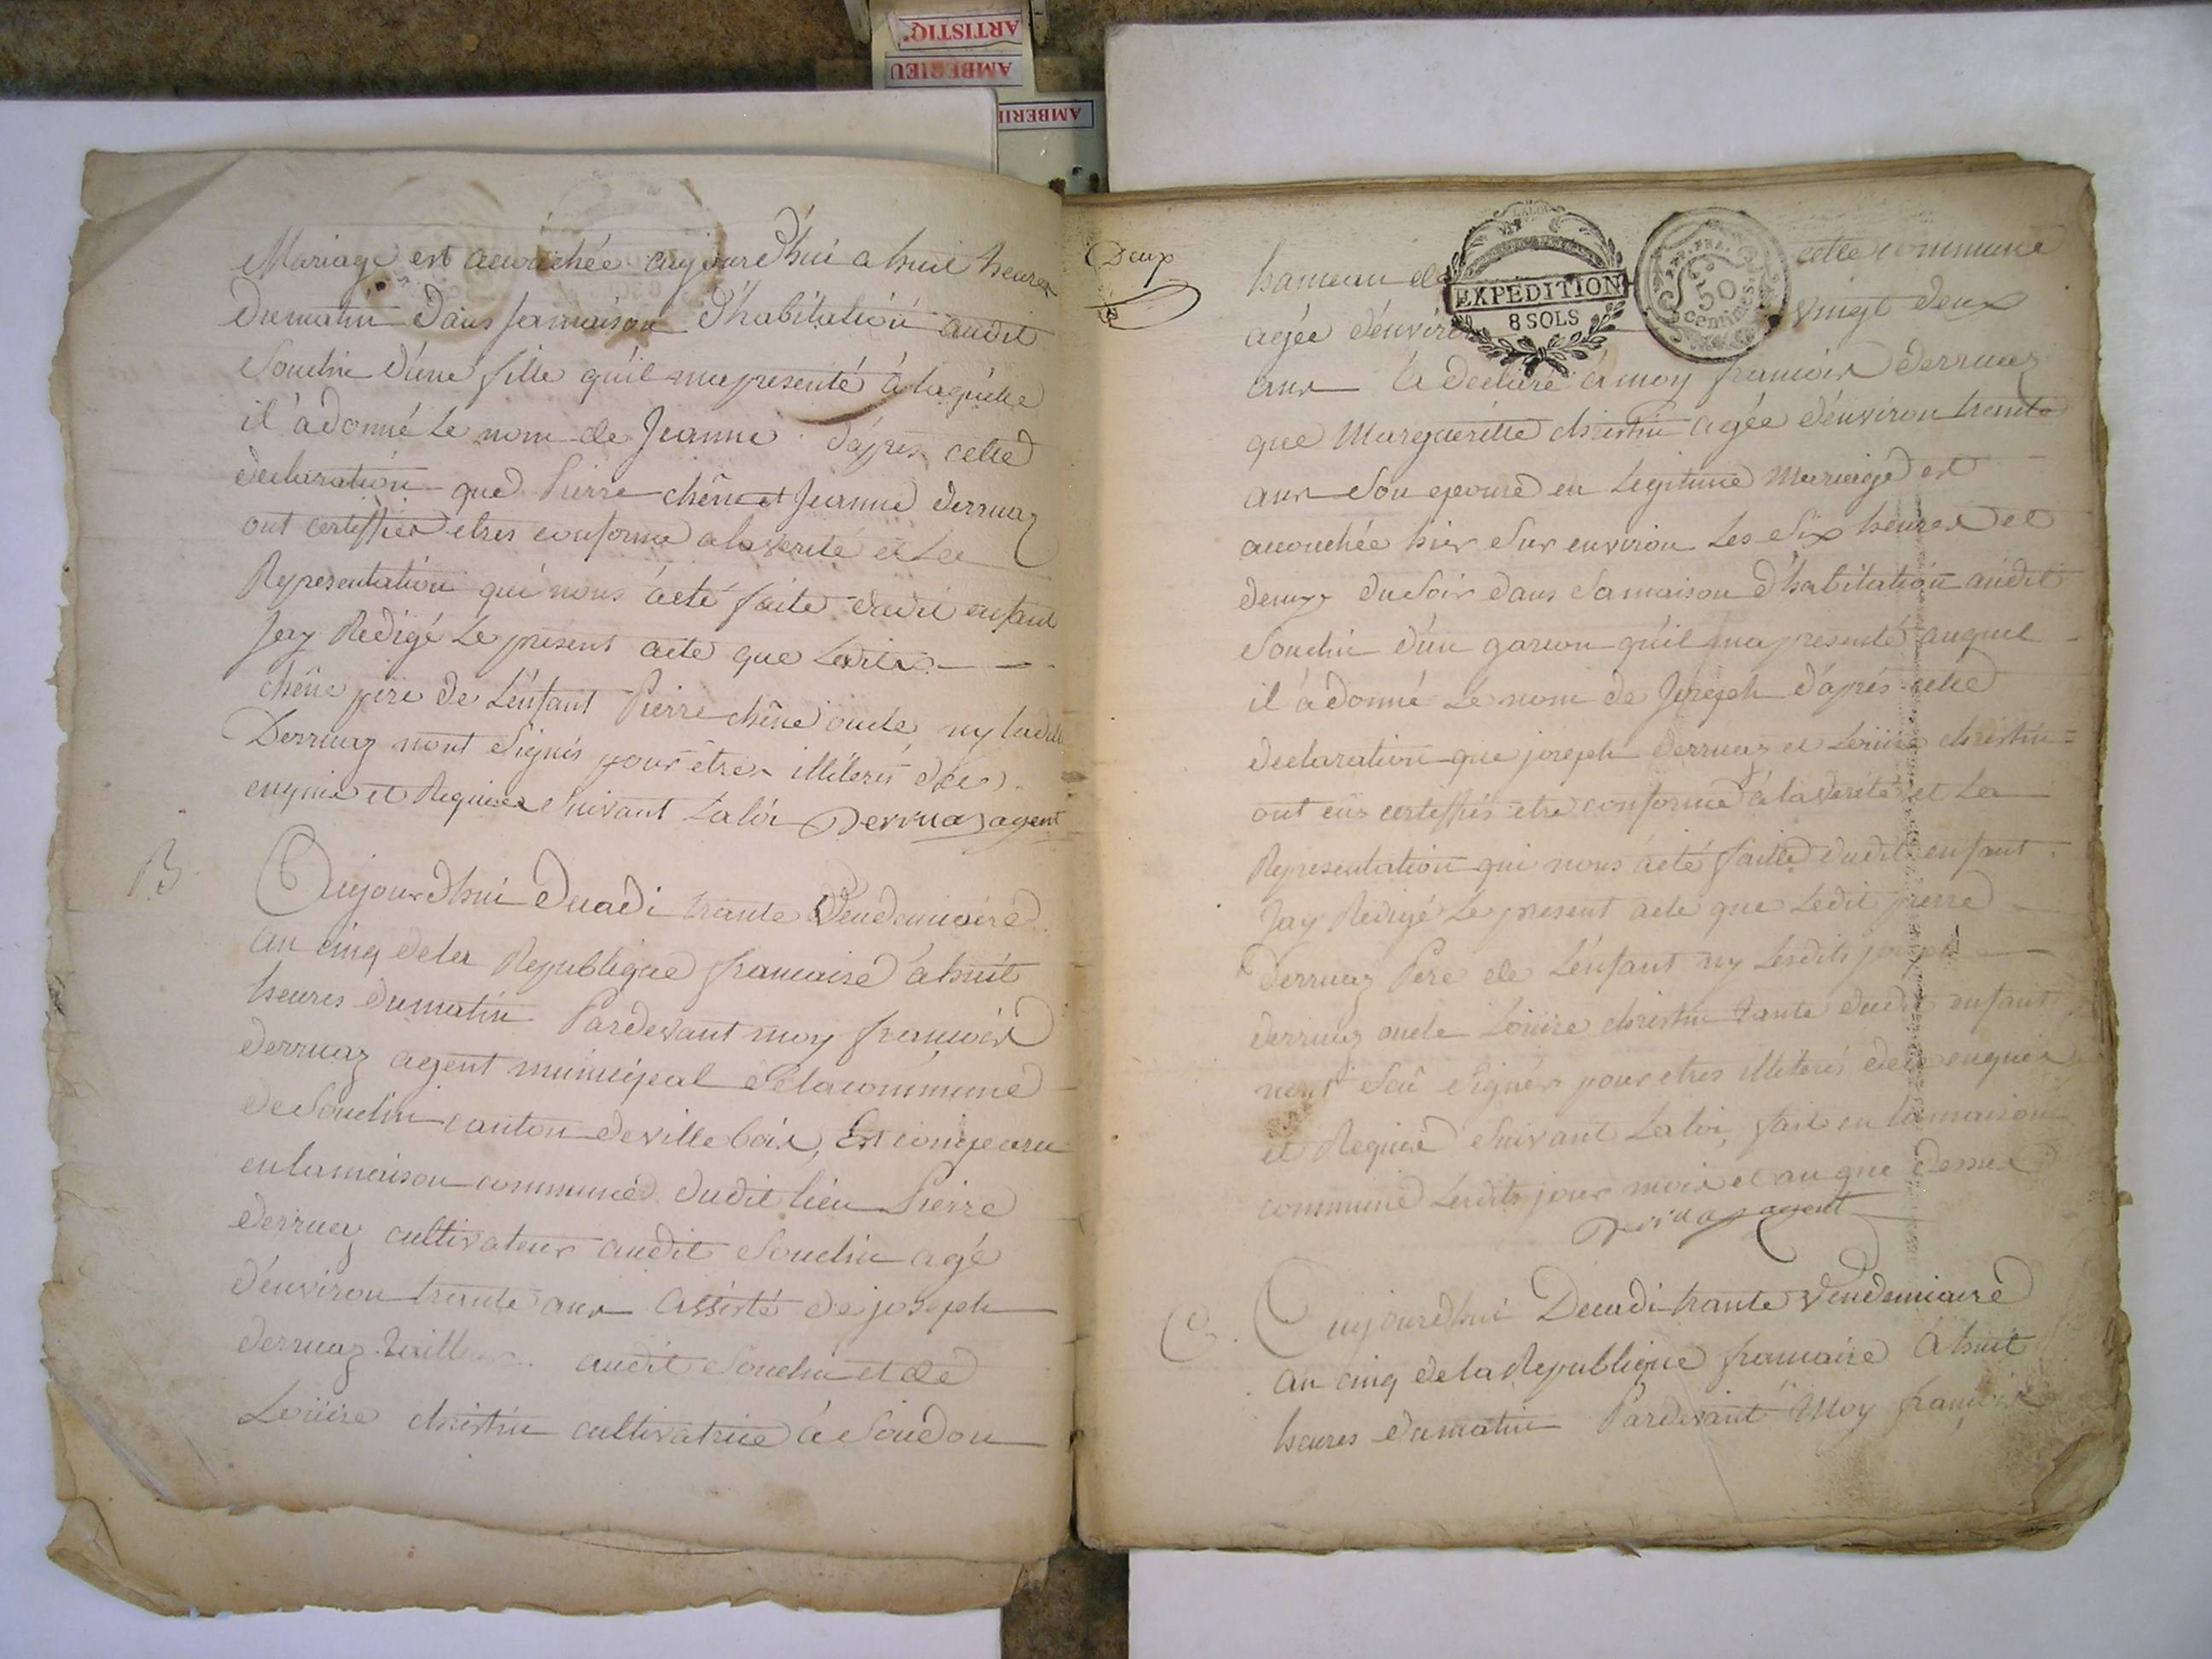 ARTISTIQ.
AMBERIEU
AMBERI
Mariage est acouchée aujourdhui a huit heures
Dumatin Dans samaison D'habitation audit
Souclin Dune fille quil ma presenté à laquelle
il à donné Le nom de Jeanne D'apres cette
declaration que Pierre chêne et Jeanne Derruaz
ont certiffier etres conforme ala verité et La
Representation qui nous àeté faite dudit enfant
Jay Redigé Le present acte que Ledit
chêne pere de L'enfant Pierre chêne oncle ny ladite
Derruaz nont Signés pour êtres illiterés de ce
enquis et Requis Suivant Laloi Derruaz agent
B
Aujourdhui Decadi trante Vendemiaire
an cinq dela Republique francaise à huit
heures dumatin Pardevant moy francois
Derruaz agent municipal delacommune
de Souclin canton deville bois, Est comparu
en lamaison commune dudit lieu Pierre
Derruaz cultivateur audit Souclin agé
d'environ trante ans Assisté de joseph
Derruaz audit Souclin et de
Loüise christin cultivatrice à Soudon
Deux
hameau de cette commune
EXPEDITION
8 SOLS
50
centimes
agée d'environ vingt deux
ans à declaré à moy francois Derruaz
que Margueritte christin agée d'environ trante
ans Son epouse en Legitime Mariage est
acouchée hier Sur environ Les Six heures et
demy du Soir dans Samaison D'habitation audit
Souclin d'un garcon quil ma presenté auquel
il à donné Le nom de Joseph d'après cette
declaration que joseph Derruaz et Loüise christin
ont certiffiés etre conforme à la verité et La
Representation qui nous àeté faitte dudit enfant
Jay Redigé Le present acte que Ledit pierre
Derruaz Pere de L'enfant ny Lesdits joseph
Derruaz oncle Loüise christin tante dudit enfant
nont Sçu Signés pour etres illiterés de ce enquis
et Requis Suivant Laloi, fait en lamaison
commune Lesdits jour mois et an que Dessus
Derruaz agent
C
Aujourdhui Decadi trante Vendemiaire
an cinq de la Republique francaise à huit
heures dumatin Pardevant Moy francois